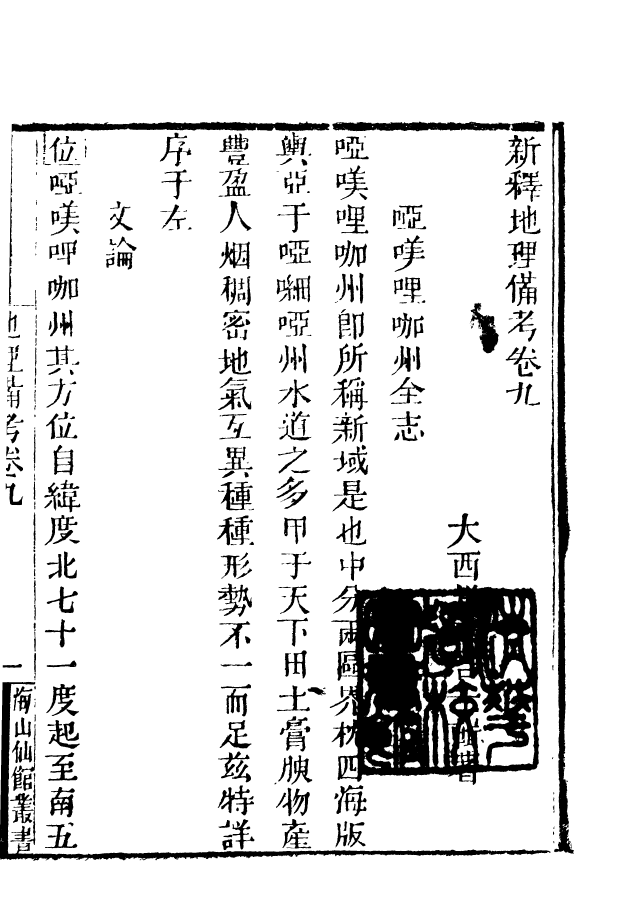 新釋地理備考卷九
大西
所著
啞嘆哩咖州全志
啞嘆哩咖州即所稱新域是也中分兩區界枕四海版
輿亞于啞細啞州水道之多甲于天下田土膏腴物產
豐盈人烟稠密地氣互異種種形勢不一而足茲特詳
序于左
文論
位啞嘆哩咖州其方位自緯度北七十一度起至南五
地理備考卷九
一
海山仙館叢書